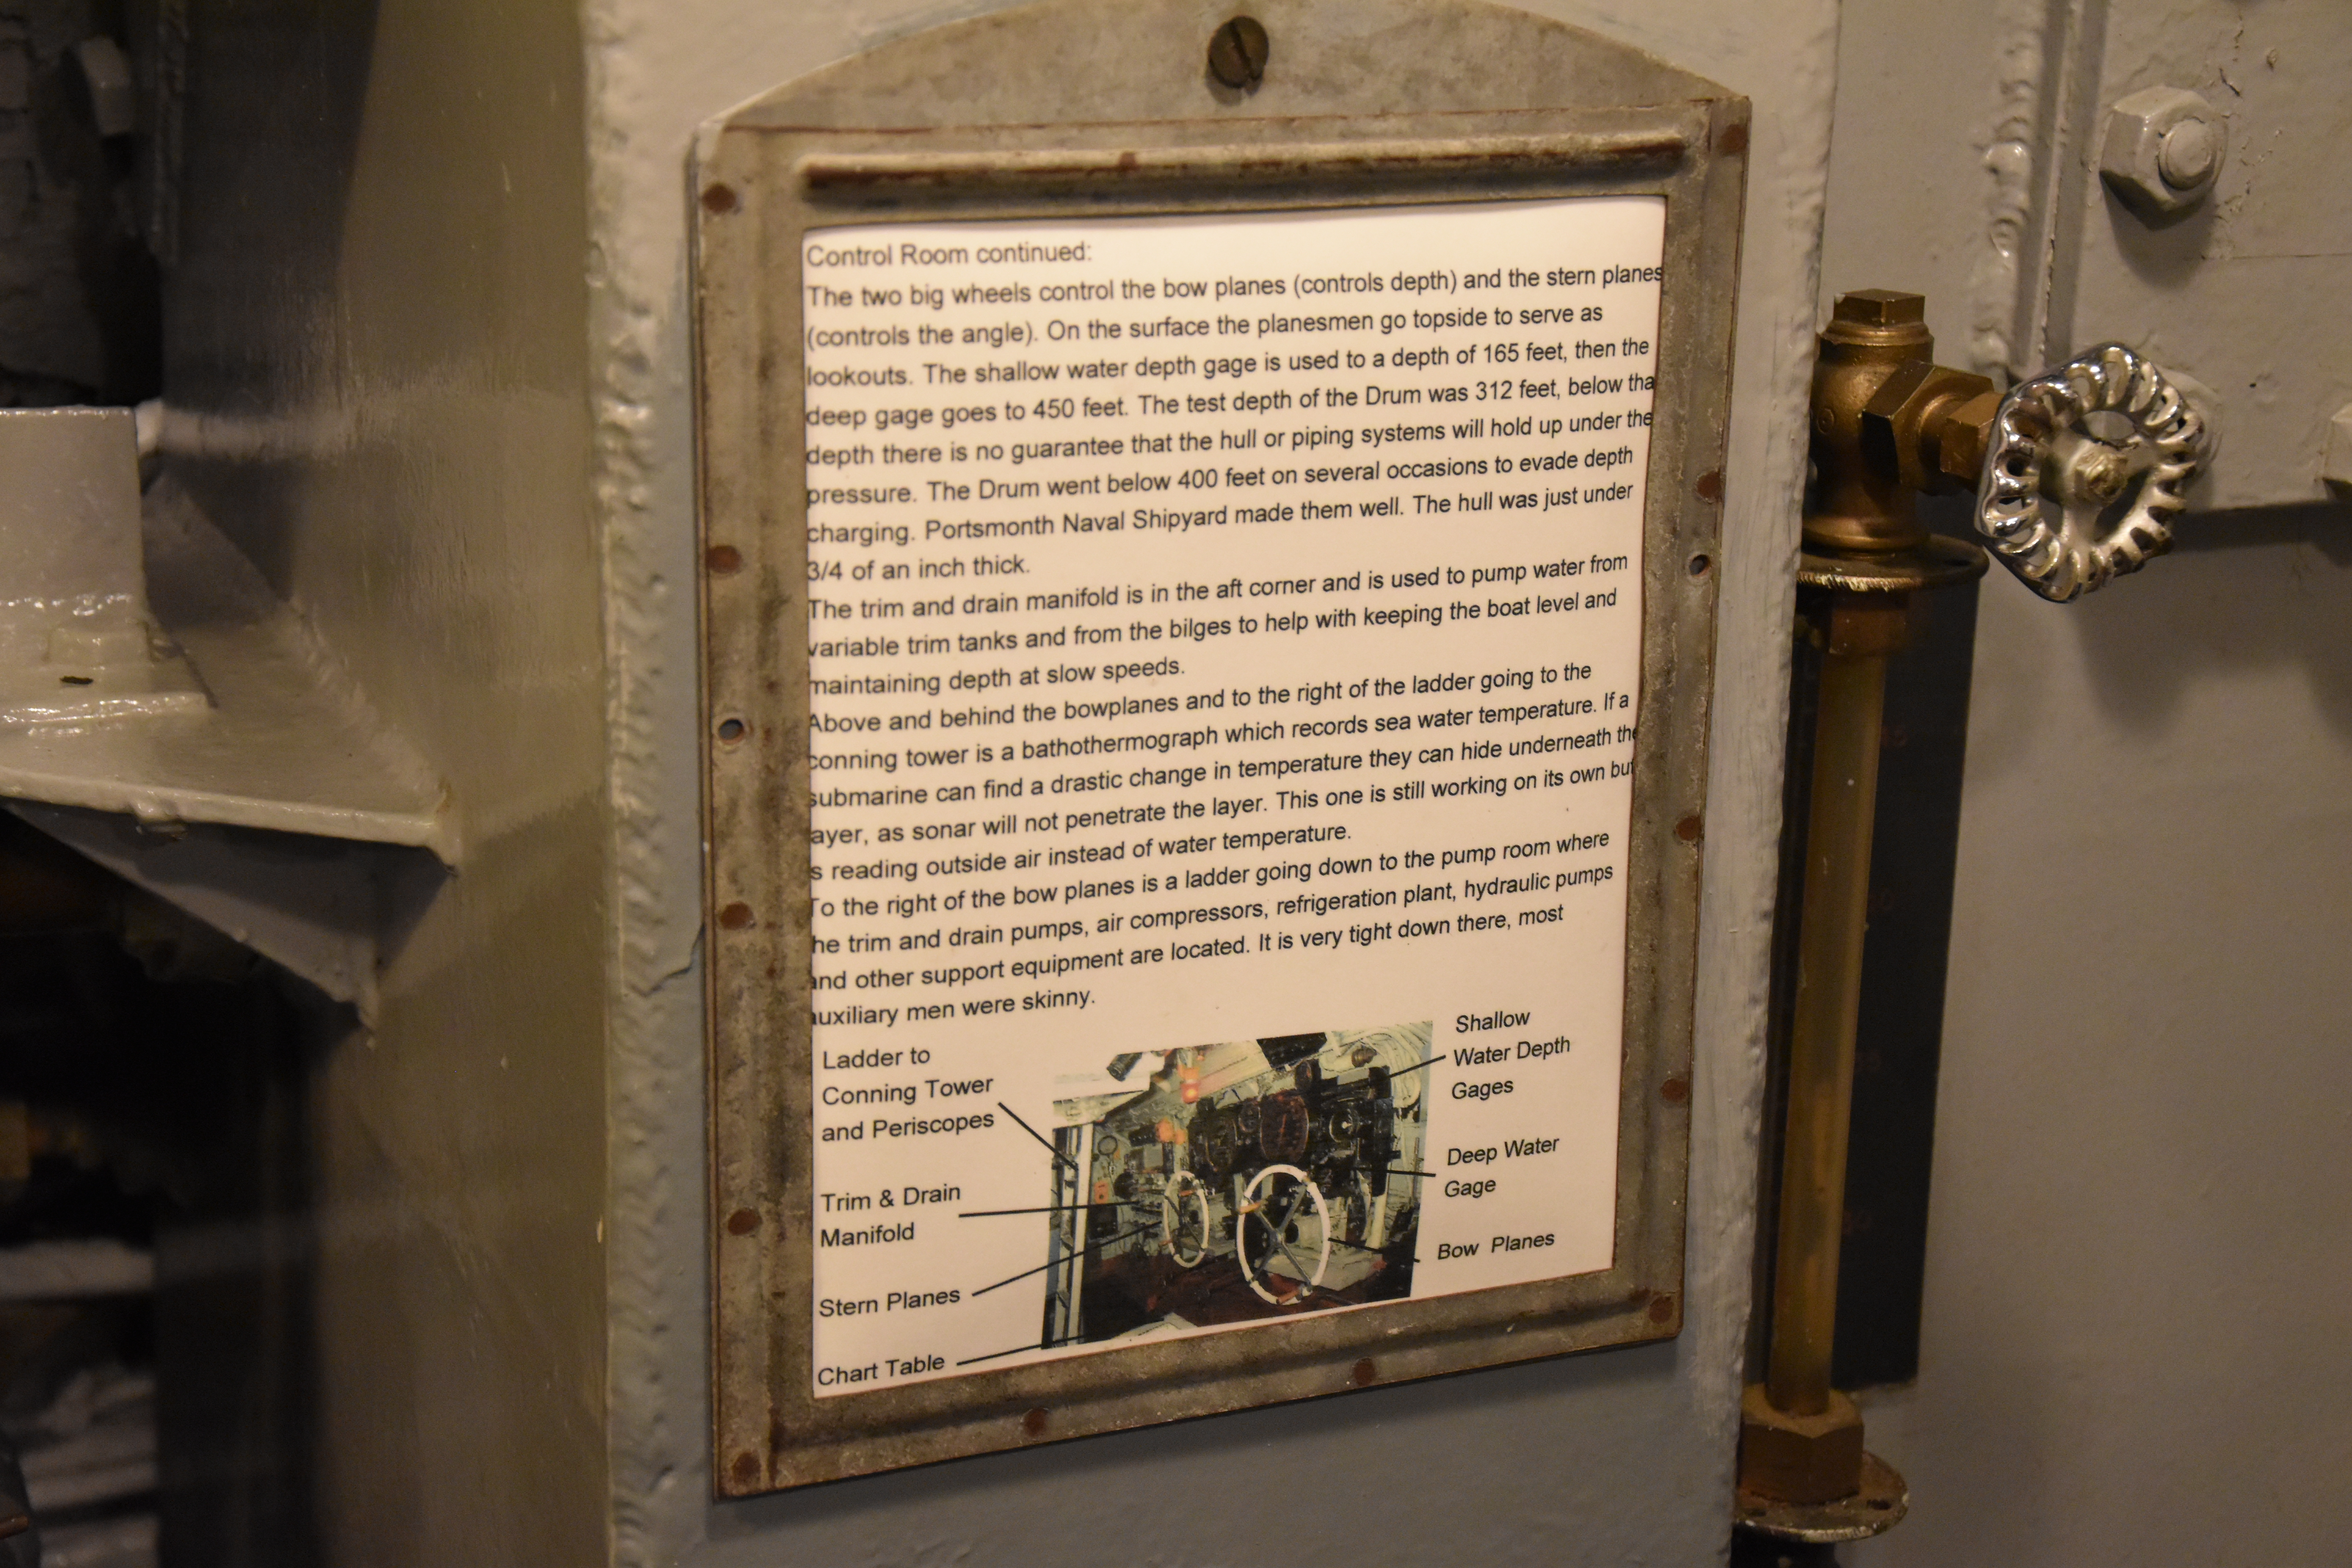 Control Room continued:
The two big wheels control the bow planes (controls depth) and the stern planes
(controls the angle). On the surface the planesmen go topside to serve as
lookouts. The shallow water depth gage is used to a depth of 165 feet, then the
deep gage goes to 450 feet. The test depth of the Drum was 312 feet, below tha
depth there is no guarantee that the hull or piping systems will hold up under the
pressure. The Drum went below 400 feet on several occasions to evade depth
charging. Portsmonth Naval Shipyard made them well. The hull was just under
3/4 of an inch thick.
The trim and drain manifold is in the aft corner and is used to pump water from
variable trim tanks and from the bilges to help with keeping the boat level and
maintaining depth at slow speeds.
Above and behind the bowplanes and to the right of the ladder going to the
conning tower is a bathothermograph which records sea water temperature. If a
submarine can find a drastic change in temperature they can hide underneath the
ayer, as sonar will not penetrate the layer. This one is still working on its own but
s reading outside air instead of water temperature.
To the right of the bow planes is a ladder going down to the pump room where
he trim and drain pumps, air compressors, refrigeration plant, hydraulic pumps
and other support equipment are located. It is very tight down there, most
auxiliary men were skinny.
Ladder to
Conning Tower
and Periscopes
Trim & Drain
Manifold
Stern Planes
Chart Table
Shallow
Water Depth
Gages
Deep Water
Gage
Bow Planes